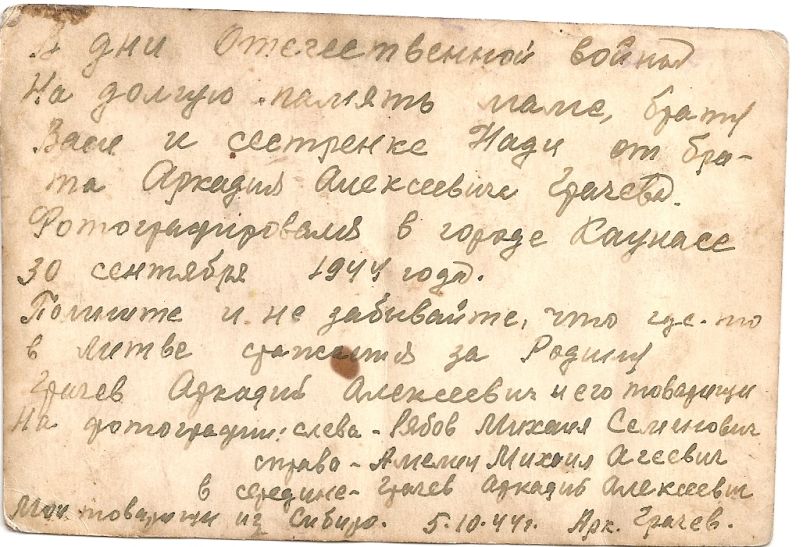 В дни Отечественной войны
На долгую память маме, брату
Васе и сестренке Нади от бра-
та Аркадия Алексеевича Грачева.
Фотографировался в городе Каунасе
30 сентября 1944 года.
Помните и не забывайте, что где-то
в Литве сражается за Родину
Грачев Аркадий Алексеевич и его товарищи
На фотографии: слева - Рябов Михаил Семенович
справа - Амелин Михаил Агеевич
в середине - Грачев Аркадий Алексеевич
Мои товарищи из Сибири. 5.10.44г. Арк. Грачев.